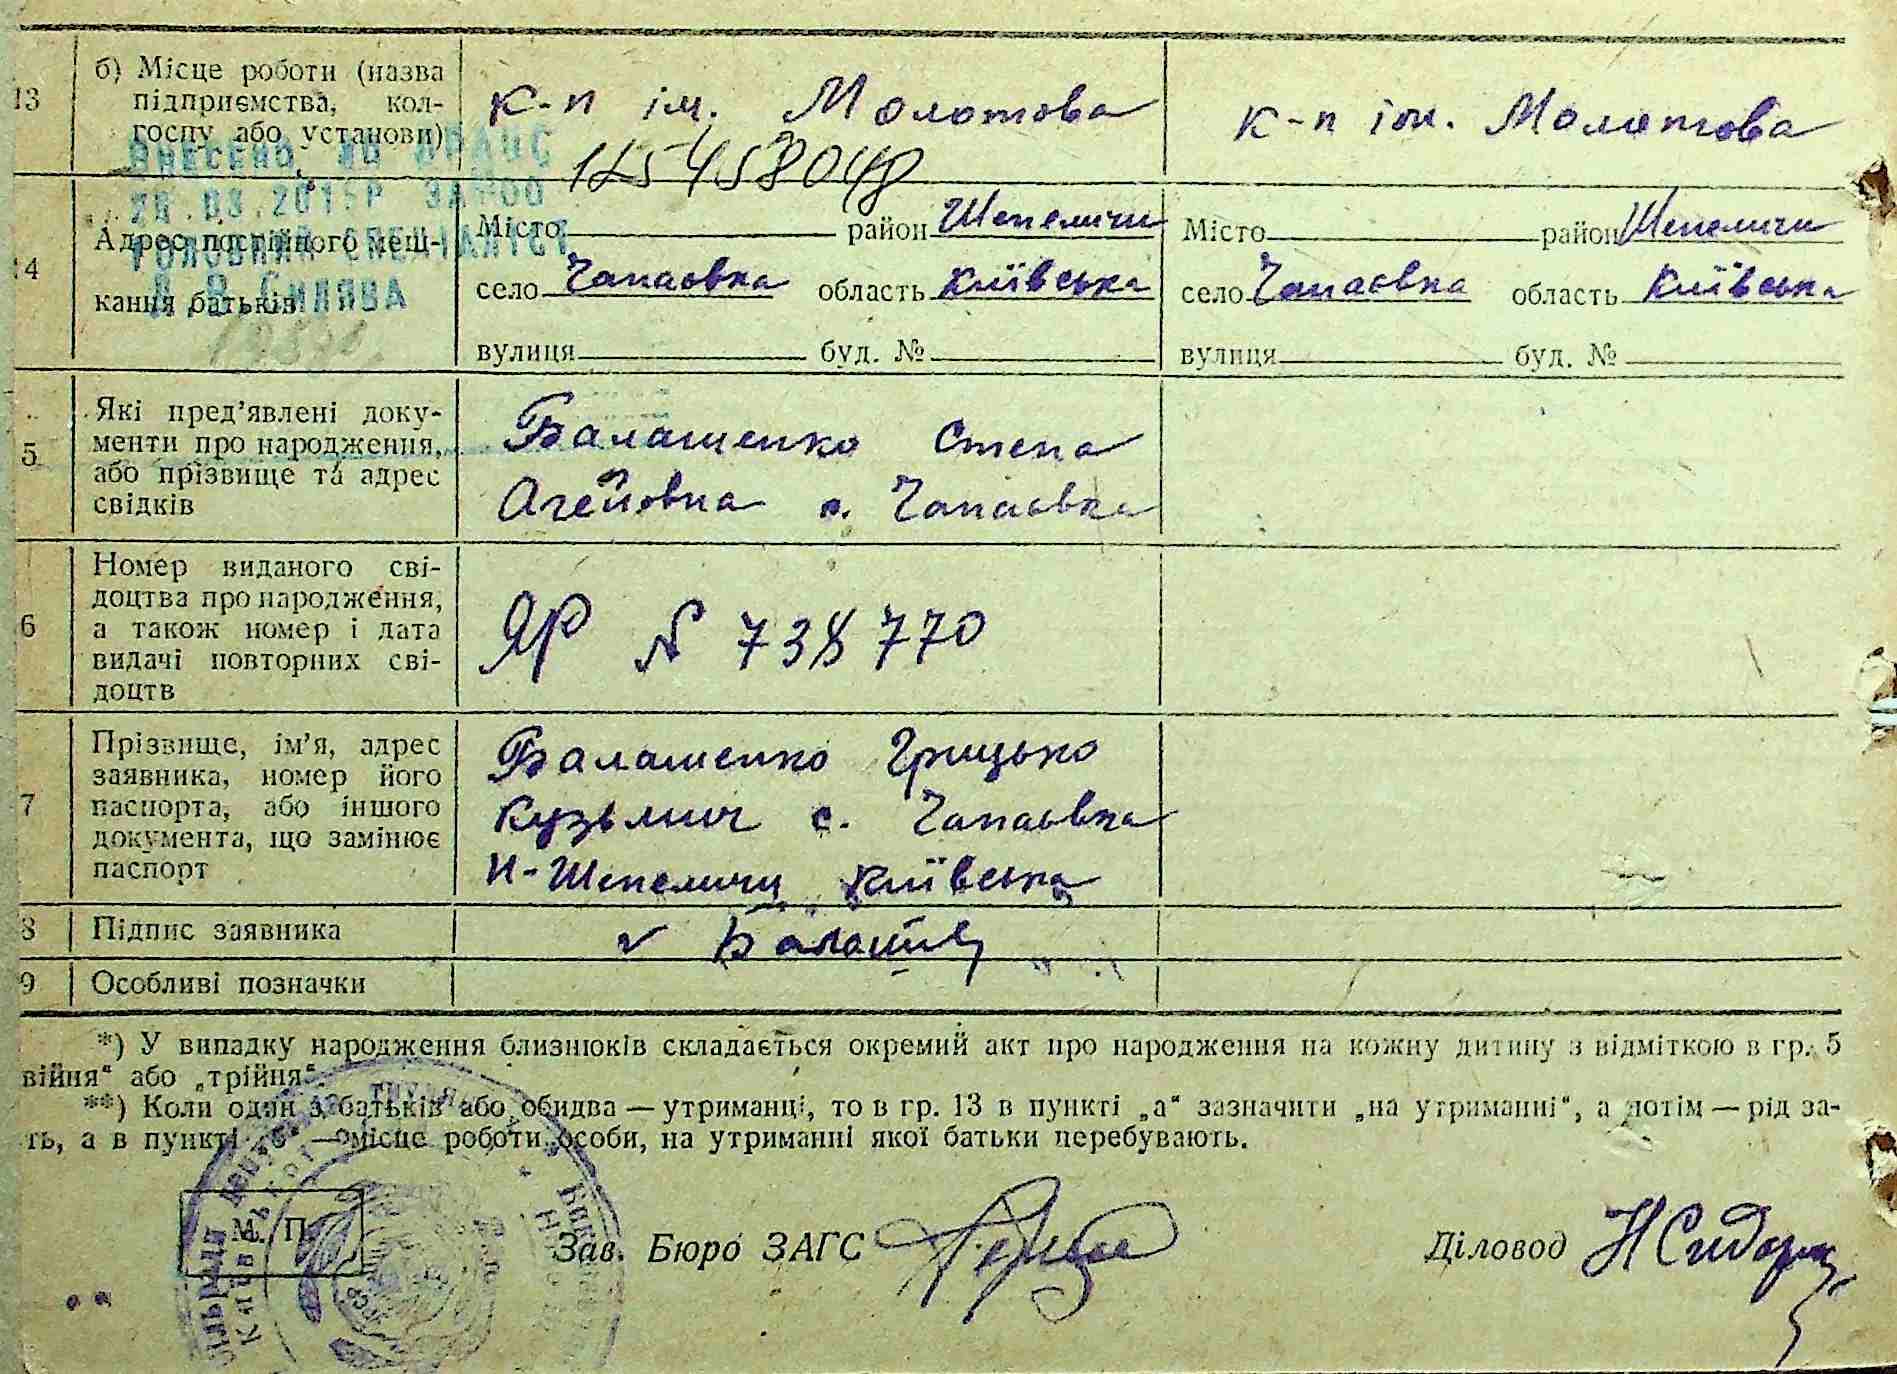 13
б) Місце роботи (назва
підприємства, кол-
госпу або установи)
к-п ім. Молотова
к-п ім. Молотова
ВНЕСЕНО ДО ДРАЦС
ГОЛОВНИЙ СПЕЦІАЛІСТ
14
Адрес постійного меш-
кання батьків
Місто район Шепеличи
село Чапаєвка область Київська
вулиця буд. №
Місто район Шепеличи
село Чапаєвка область Київська
вулиця буд. №
5
Які пред’явлені доку-
менти про народження,
або прізвище та адрес
свідків
Балашенко Степа
Агейовна с. Чапаєвка
6
Номер виданого сві-
доцтва про народження,
а також номер і дата
видачі повторних сві-
доцтв
ЯР № 738770
7
Прізвище, ім’я, адрес
заявника, номер його
паспорта, або іншого
документа, що замінює
паспорт
Балашенко Грицько
Кузьмич с. Чапаєвка
Н-Шепеличи Київська
8
Підпис заявника
9
Особливі позначки
*) У випадку народження близнюків складається окремий акт про народження на кожну дитину з відміткою в гр. 5
війня“ або „трійня“.
**) Коли один з батьків або обидва — утриманці, то в гр. 13 в пункті „а“ зазначити „на утриманні“, а потім — рід за-
ть, а в пункті „б“ — місце роботи особи, на утриманні якої батьки перебувають.
М. П.
Зав. Бюро ЗАГС
Діловод